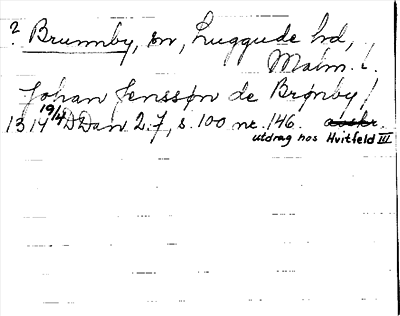 ? Brunnby, sn, Luggude hd,
Malm. l.
Johan Jenssøn de Brønby /
1314 19/4 DDan 2.7, s. 100 nr. 146. avskr.
utdrag hos Hvitfeld III